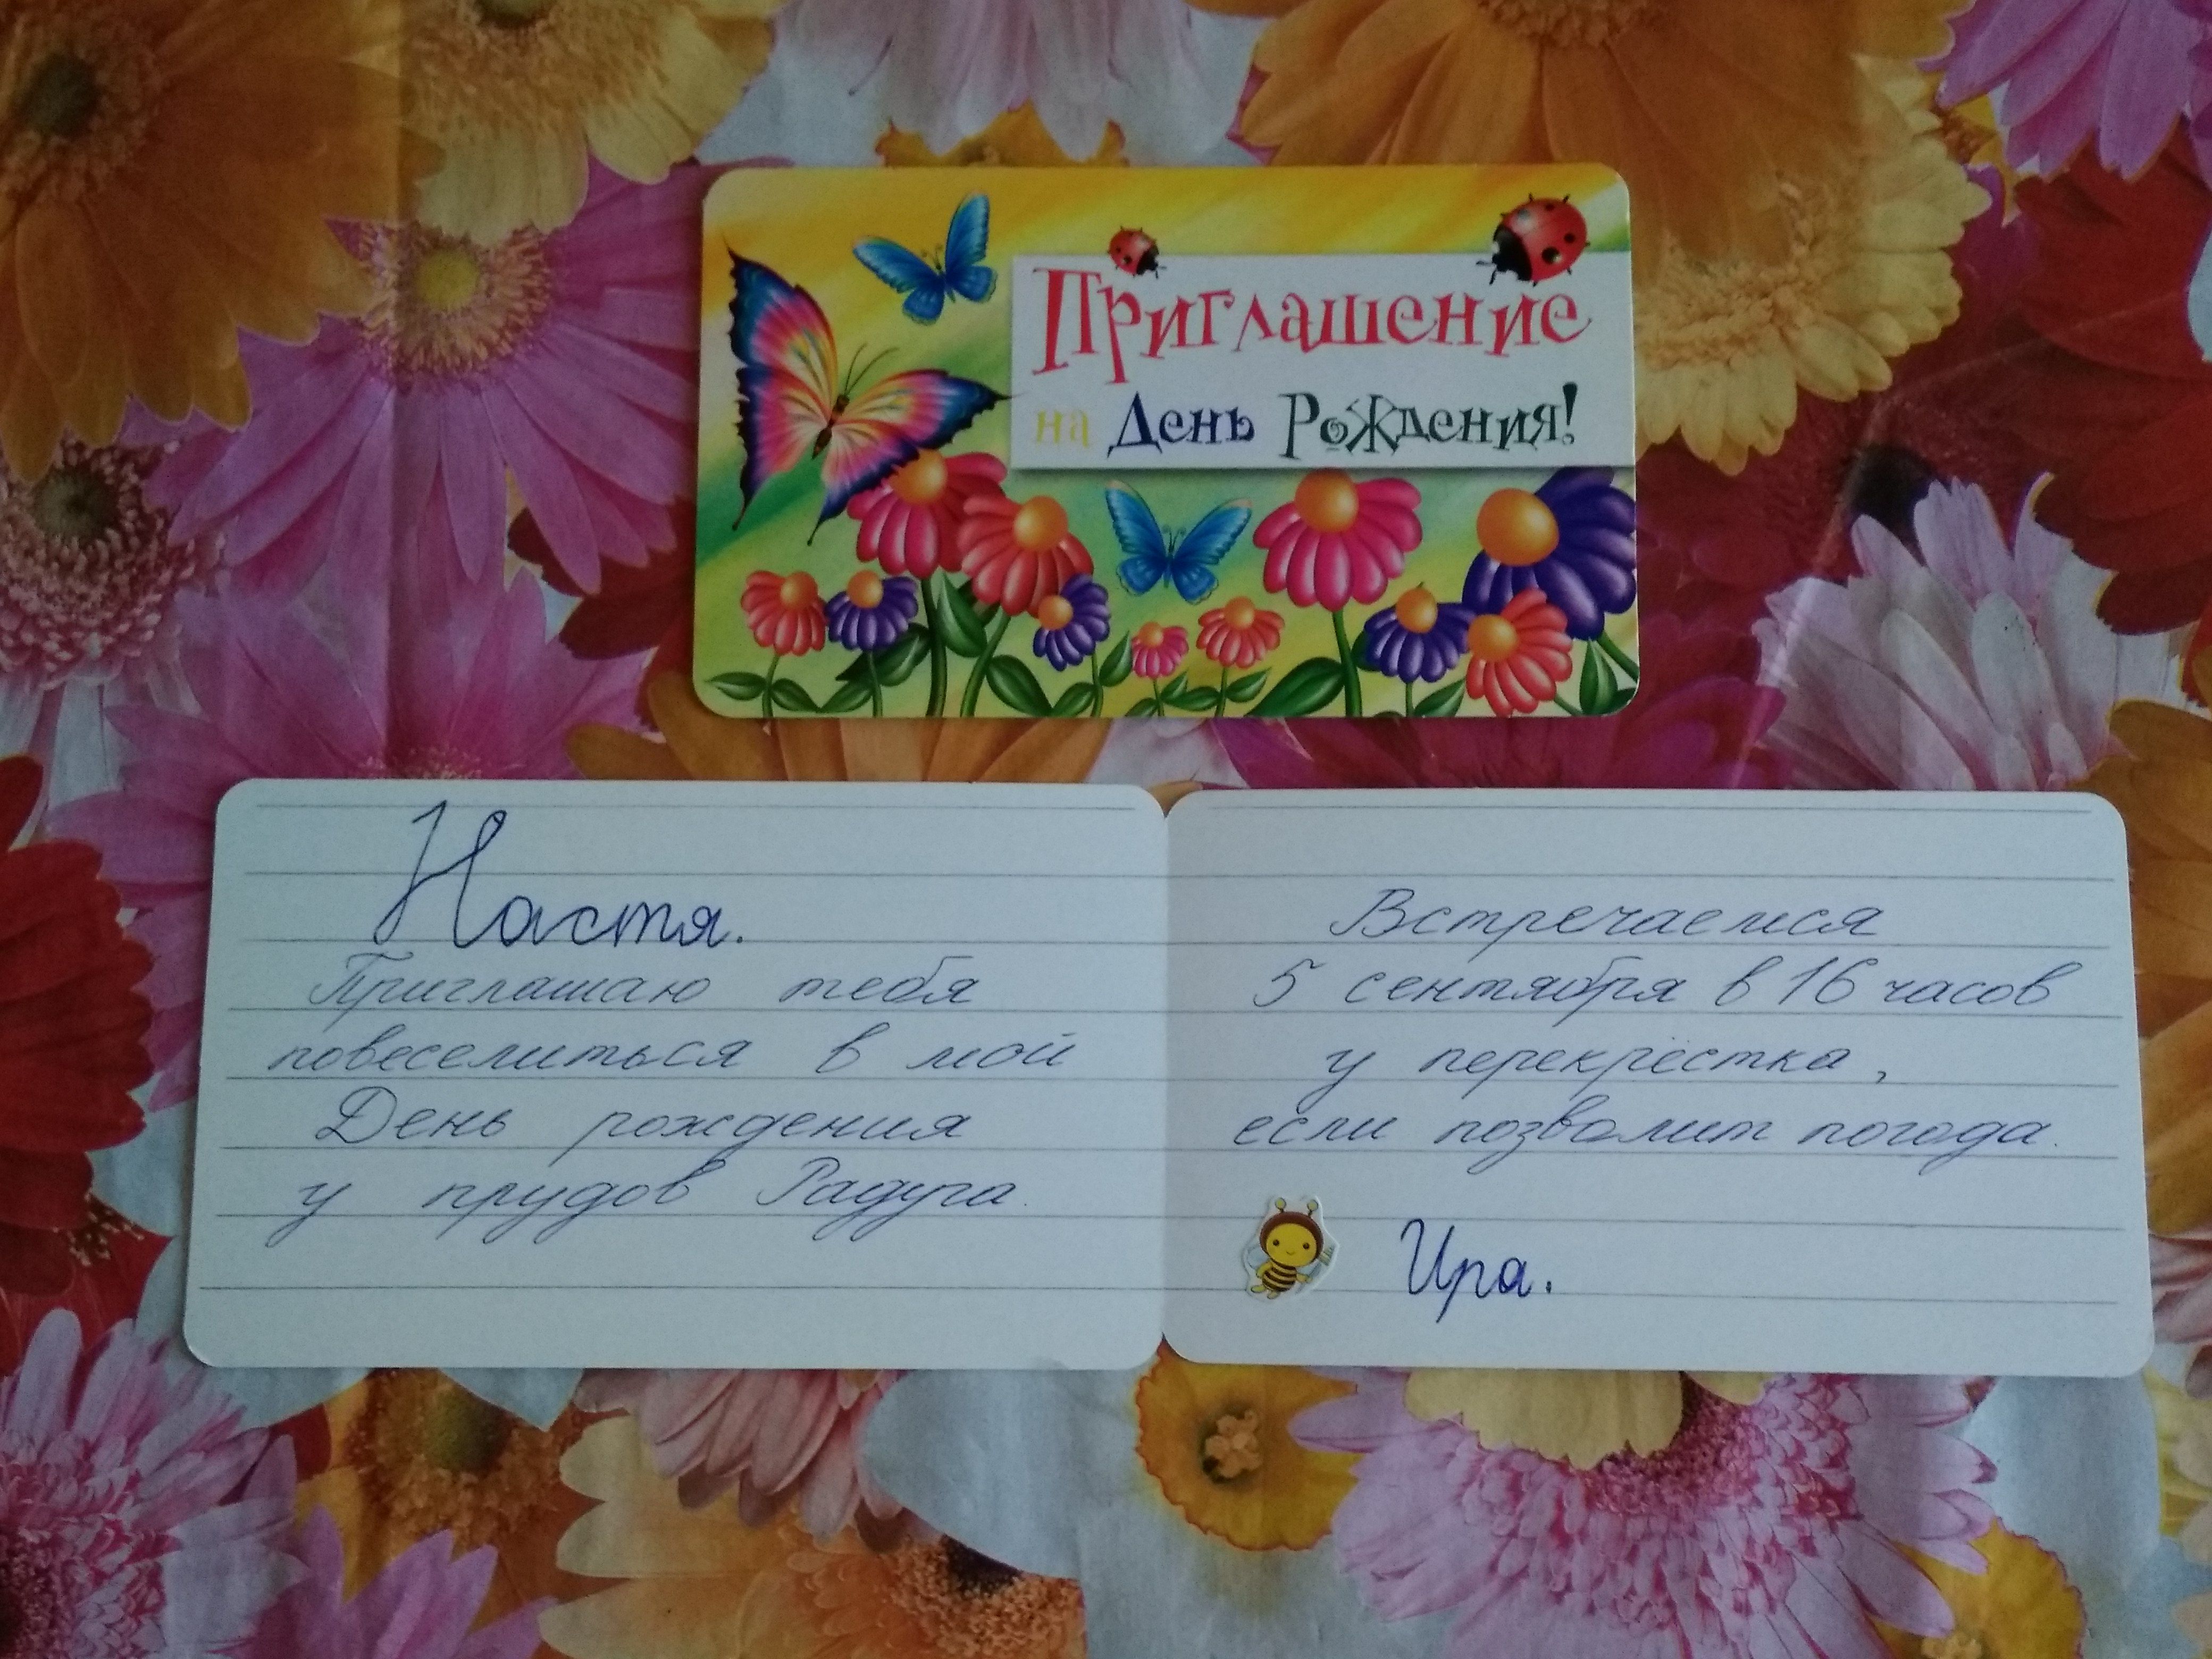 Приглашение
на День Рождения!
Настя.
Приглашаю тебя
повеселиться в мой
День рождения
у прудов Радуга.
Встречаемся
5 сентября в 16 часов
у перекрёстка,
если позволит погода.
Ира.